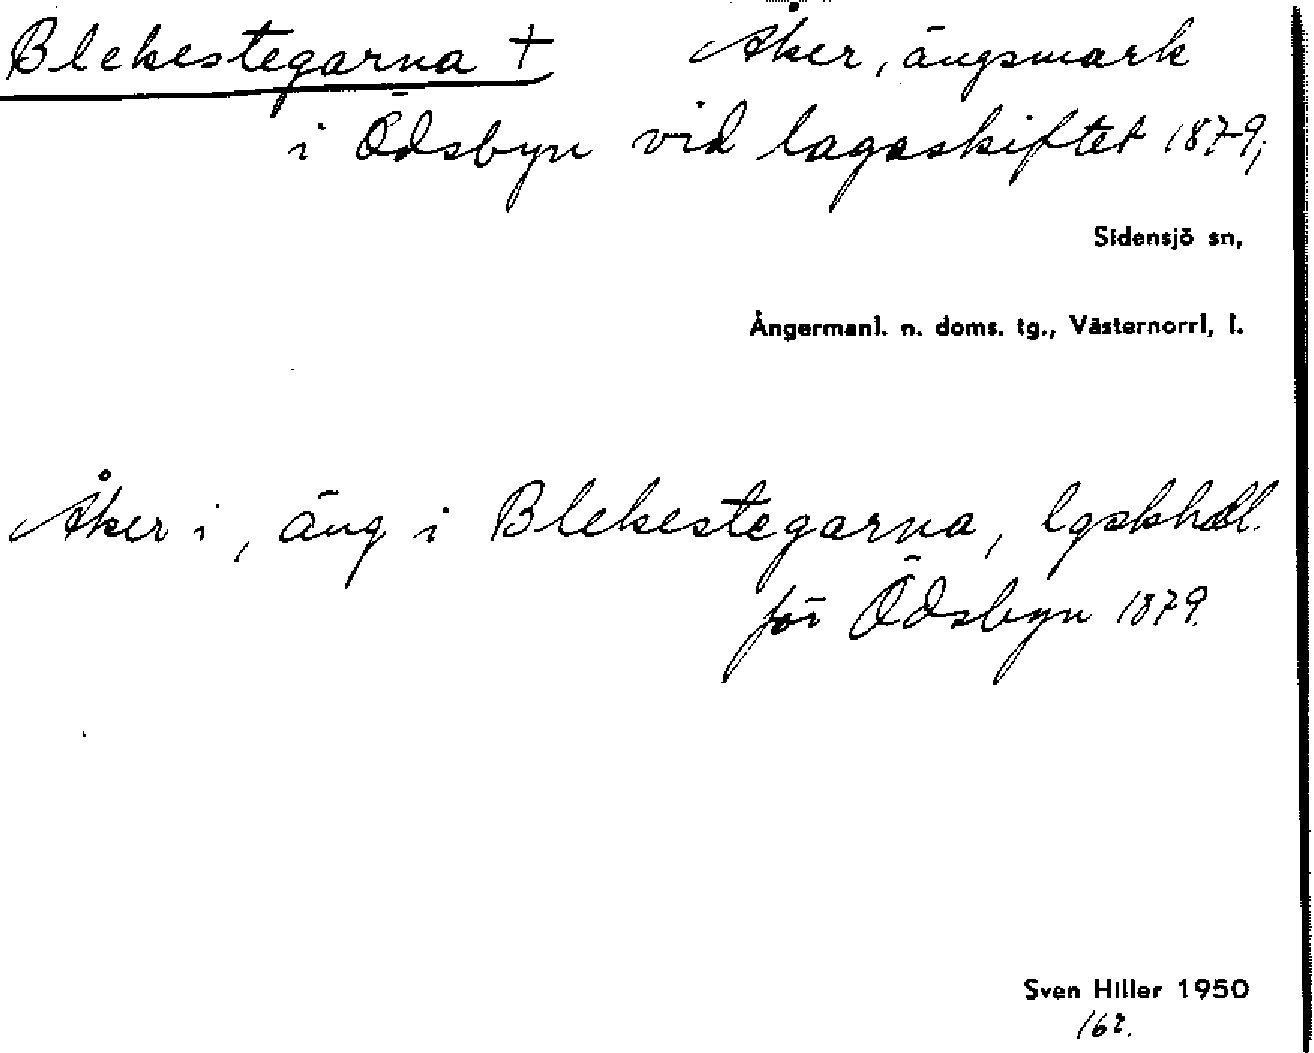 Blekestegarna † Åker, ängsmark
i Ödsbyn vid lagaskiftet 1879;
Sidensjö sn,
Ångermanl. n. doms. tg., Västernorrl, l.
Åker i, äng i Blekestegarna, lgskhdl.
för Ödsbyn 1879.
Sven Hiller 1950
162.